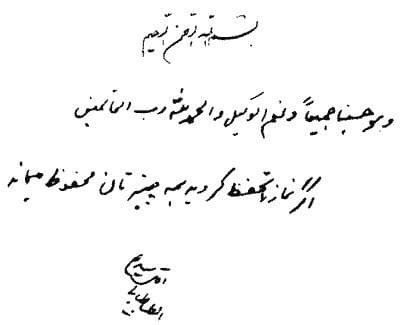 بسم الله الرحمن الرحیم
و هو حسبنا جمیعاً و نعم الوکیل و الحمد لله رب العالمین
اگر نماز را تحفظ کردید همه چیزتان محفوظ میماند
سید
الطباطبائی